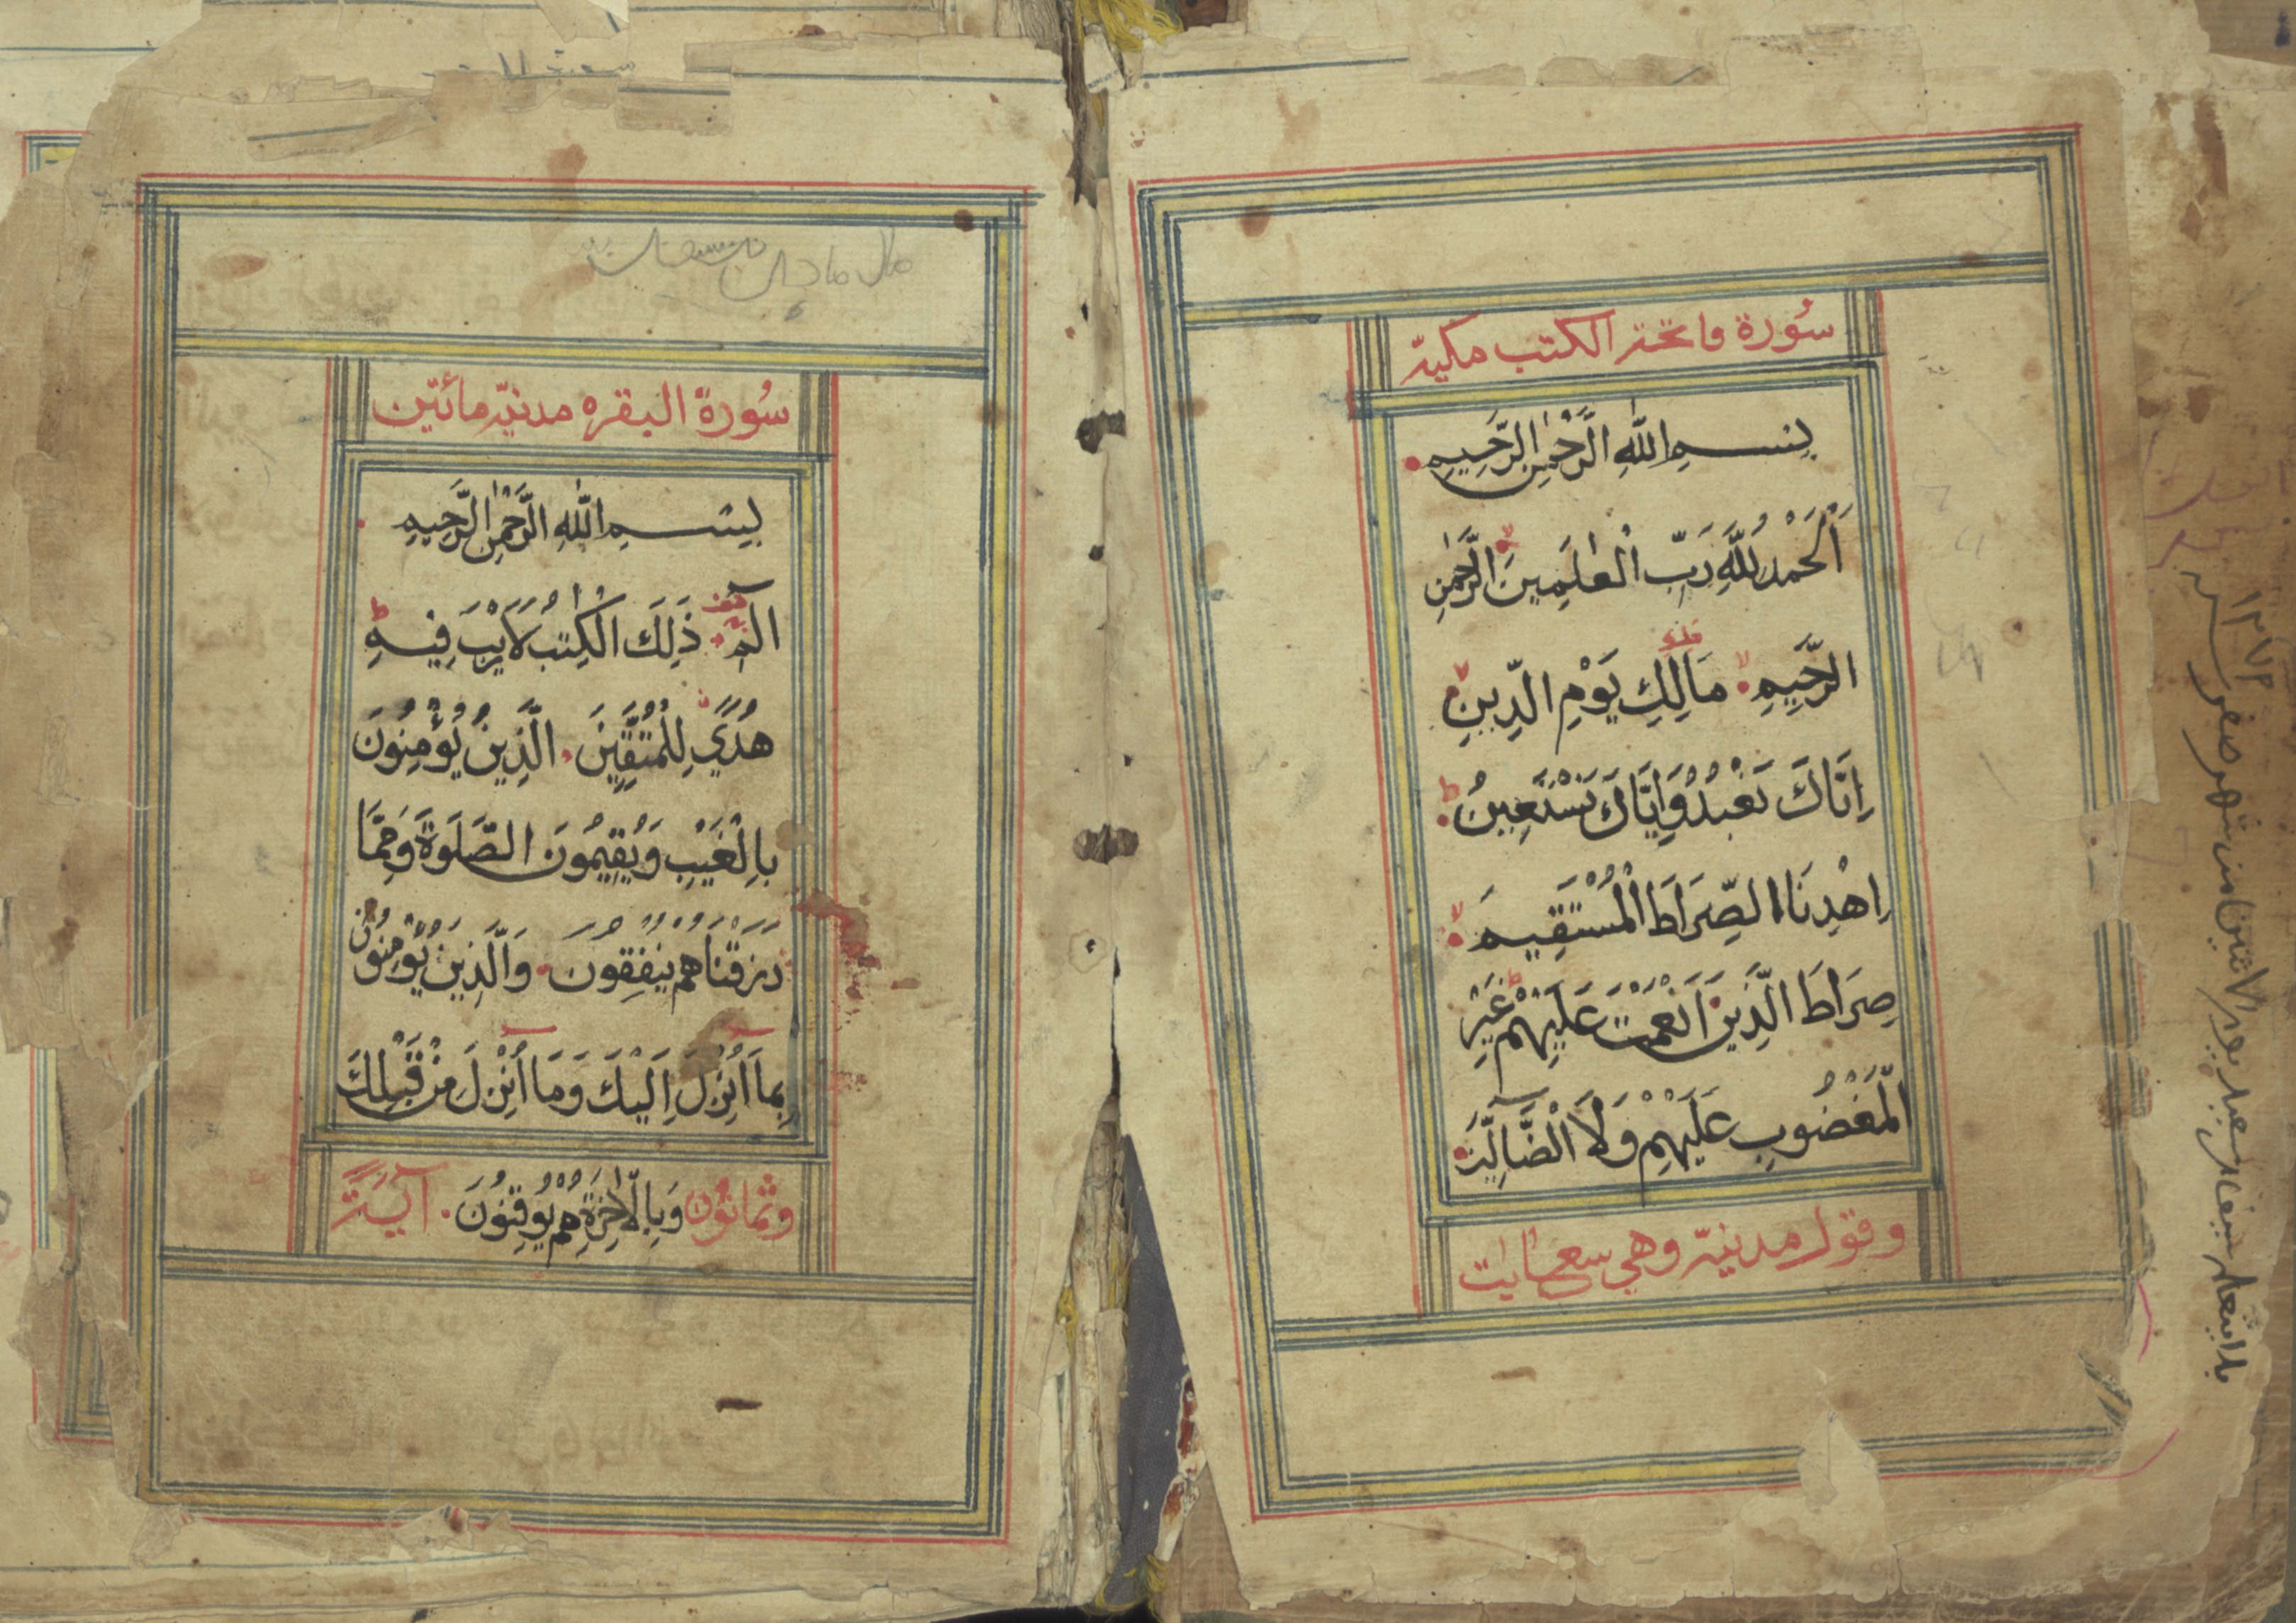 سُورة فاتحة الكتب مكية
بِسْمِ اللهِ الرَّحْمٰنِ الرَّحِيمِ
اَلْحَمْدُ لِلّٰهِ رَبِّ الْعٰلَمِينَ الرَّحْمٰنِ
الرَّحِيمِ مَالِكِ يَوْمِ الدِّينِ
اِيَّاكَ نَعْبُدُ وَاِيَّاكَ نَسْتَعِينُ
اِهْدِنَا الصِّرَاطَ الْمُسْتَقِيمَ
صِرَاطَ الَّذِينَ اَنْعَمْتَ عَلَيْهِمْ غَيْرِ
الْمَغْضُوبِ عَلَيْهِمْ وَلَا الْضَّالِّينَ
وقول مدنية وهي سبع ايات
سُورة البقره مدنية مائتين
بِسْمِ اللهِ الرَّحْمٰنِ الرَّحِيمِ
الٓمٓ ذَلِكَ الْكِتٰبُ لَا رَيْبَ فِيهِ
هُدًى لِلْمُتَّقِينَ الَّذِينَ يُؤْمِنُونَ
بِالْغَيْبِ وَيُقِيمُونَ الصَّلَوةَ وَمِمَّا
رَزَقْنَاهُمْ يُنْفِقُونَ وَالَّذِينَ يُؤْمِنُونَ
بِمَا اُنْزِلَ اِلَيْكَ وَمَا اُنْزِلَ مِنْ قَبْلِكَ
وثمانون وَبِالْاٰخِرَةِ هُمْ يُوقِنُونَ آية